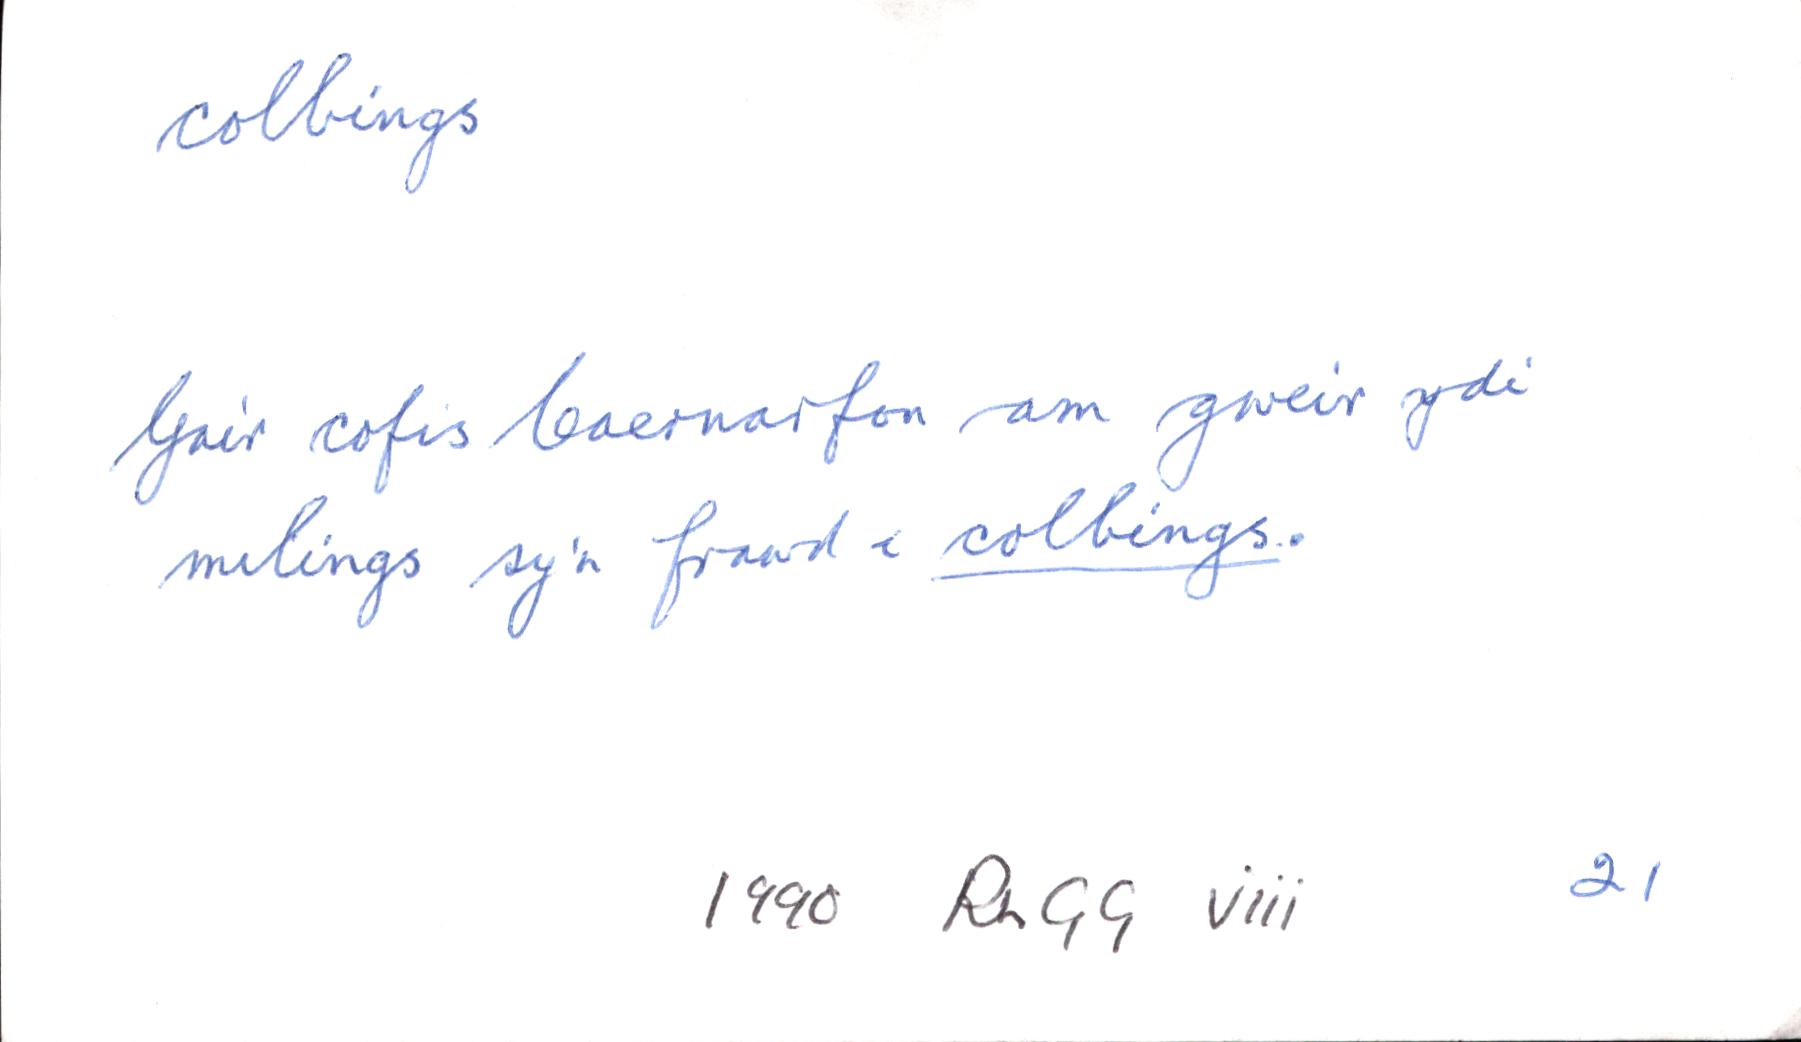 colbings
Gair cofis Caernarfon am gweir ydi
milings sy'n frawd i colbings.
1990 RhGG viii 21